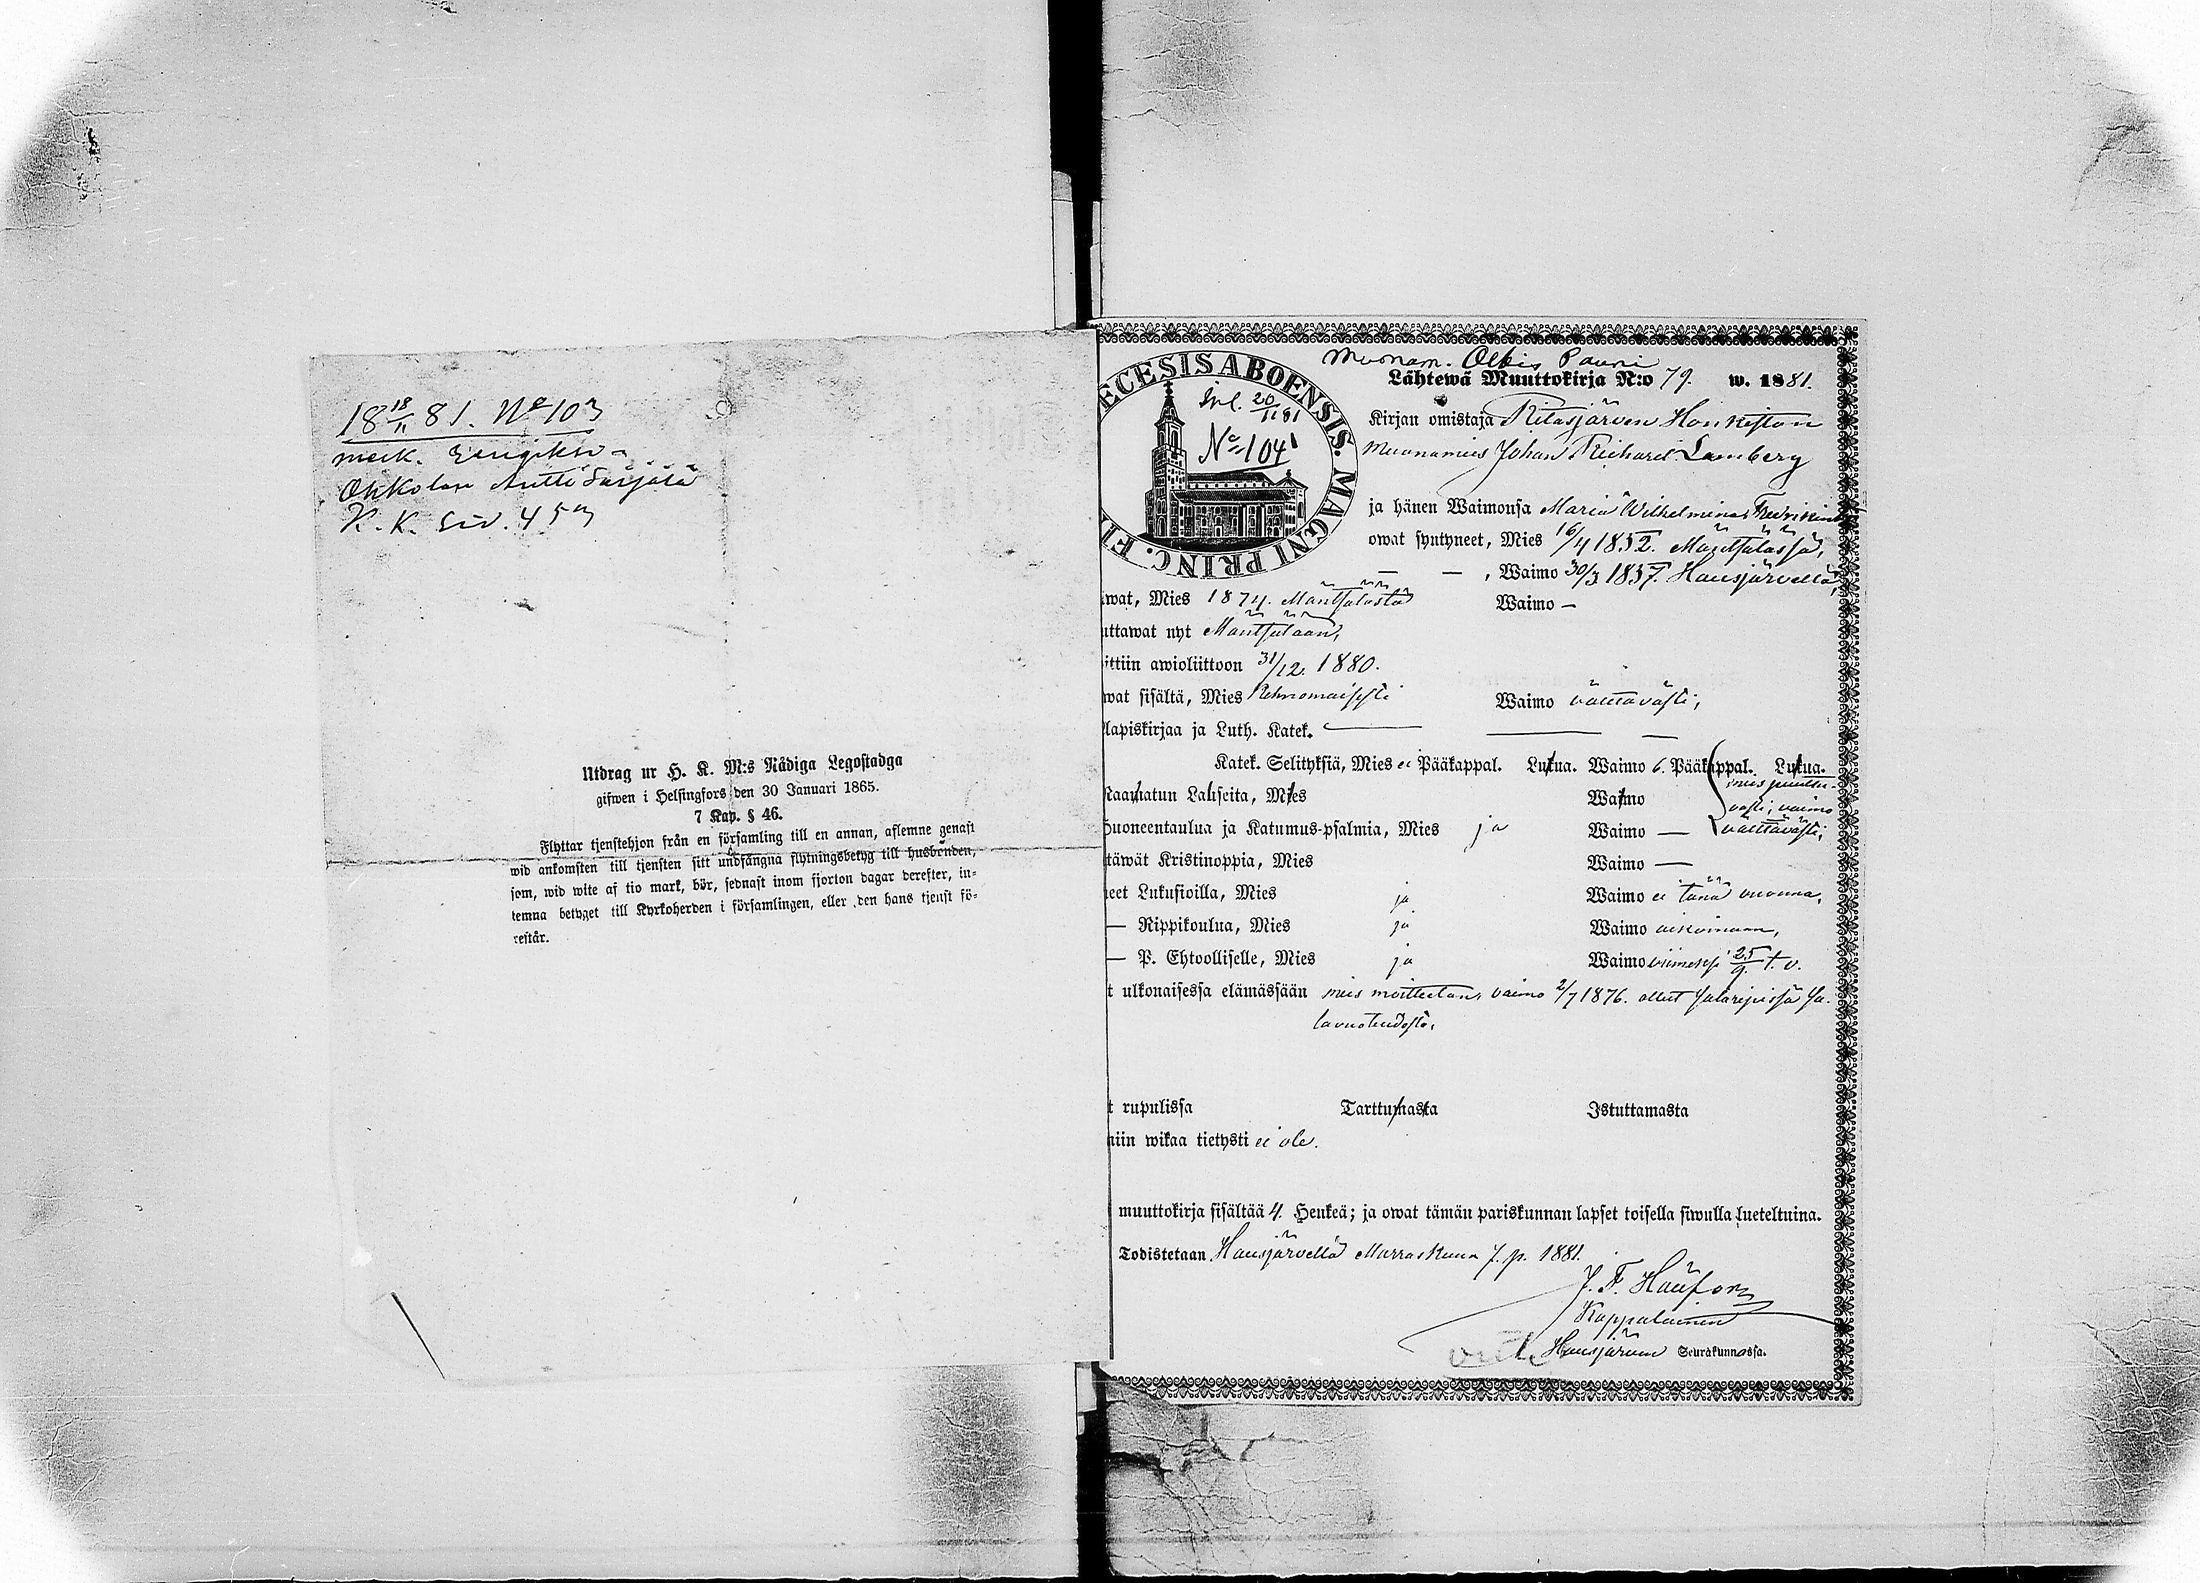 18 18/11 81. No 103
Ohkolan Antti Särjälä
K. K. Siv. 453
Utdrag ur H. K. M:s Nådiga Legostadga
gifwen i Helsingfors den 30 Januari 1865.
7 Kap. § 46.
Flyttar tjenstehjon från en församling till en annan, aflemne genast
wid ankomsten till tjensten sitt undfångna flytningsbetyg till husbonden,
som, wid wite af tio mark, bör, sednast inom fjorton dagar derefter, in-
lemna betyget till Kyrkoherden i församlingen, eller den hans tjenst fö-
restår.
ECESIS ABOENSIS. MAGNI PRINC. FI
20/11 81
No 104
Muonam.
Lähtewä Muuttokirja N:o 79. w. 1881.
Kirjan omistaja Ritasjärven Honkiston
Muonamies Johan Richard Lamberg
ja hänen Waimonsa Maria Wilhelmina
owat syntyneet, Mies 16/4 1852. Mäntsälässä,
— — , Waimo 30/3 1857. Hausjärvellä,
wat, Mies 1874. Mäntsälästä Waimo —
uttawat nyt Mäntsälään,
ittiin awioliittoon 31/12. 1880.
wat sisältä, Mies kelwomaisesti Waimo välttävästi,
lapiskirjaa ja Luth. Katek. — — —
Katek. Selityksiä, Mies ei Pääkappal. Lukua. Waimo 6. Pääkappal. Lukua.
Raamatun Lauseita, Mies Waimo
mies puuttu-
vasti, vaimo
välttävästi;
Huoneentaulua ja Katumus-psalmia, Mies ja Waimo —
täwät Kristinoppia, Mies Waimo —
eet Lukusioilla, Mies ja Waimo ei tänä vuonna,
— Rippikoulua, Mies ja Waimo aikoinaan,
— P. Ehtoolliselle, Mies ja Waimo viimeksi 25/9. t. v.
t ulkonaisessa elämässään mies moitteeton, vaimo 2/7 1876. ollut salaripissä sa-
lavuoteudesta.
t rupulissa Tarttumasta Istuttamasta
niin wikaa tietysti ei ole.
muuttokirja sisältää 4. Henkeä; ja owat tämän pariskunnan lapset toisella siwulla lueteltuina.
Todistetaan Hausjärvellä Marraskuun 7. p. 1881.
Kappalainen
Hausjärven Seurakunnassa.